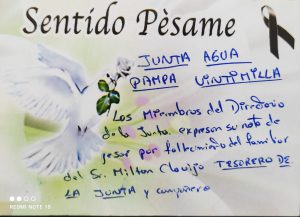 Sentido Pèsame
JUNTA AGUA
PAMPA VINTIMILLA
Los Miembros del Directorio
de la Junta. expresan su nota de
pesar por fallecimiento del familiar
del Sr. Milton Clavijo TESORERO DE
LA JUNTA y compañero
REDMI NOTE 10